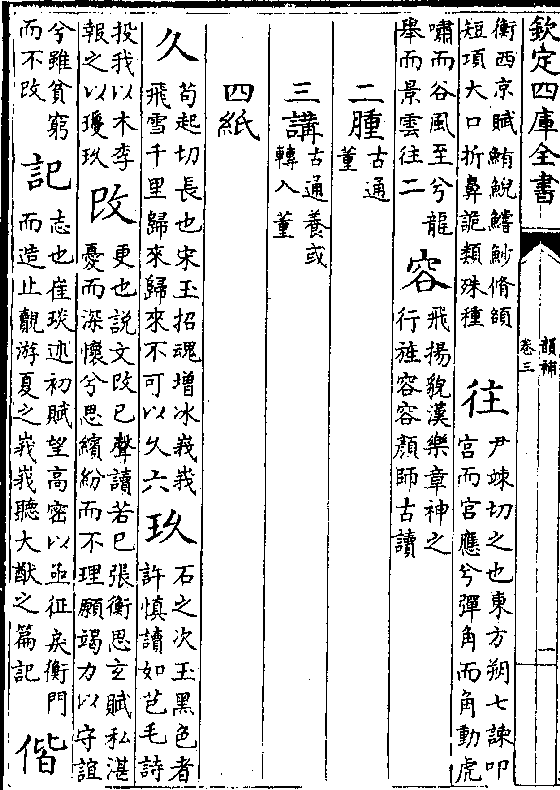 欽定四庫全書
韻補
卷三
一
衡西京賦鮪鯢鱨魦脩頟
短項大口折鼻詭類殊種
往
尹竦切之也東方朔七諫叩
宮而宮應兮彈角而角動虎
嘯而谷風至兮龍
舉而景雲往二
容
飛揚貌漢樂章神之
行旌容容顔師古讀
二腫
古通
董
三講
古通養或
轉入董
四紙
久
苟起切長也宋玉招魂增冰峩峩
飛雪千里歸來歸來不可以久六
玖
石之次玉黑色者
許慎讀如芑毛詩
投我以木李
報之以瓊玖
改
更也説文改已聲讀若已張衡思玄賦私湛
憂而深懷兮思繽紛而不理願竭力以守誼
兮雖貧窮
而不改
記
志也崔琰述初賦望高密以亟征戾衡門
而造止觀游夏之峩峩聽大猷之篇記
偕